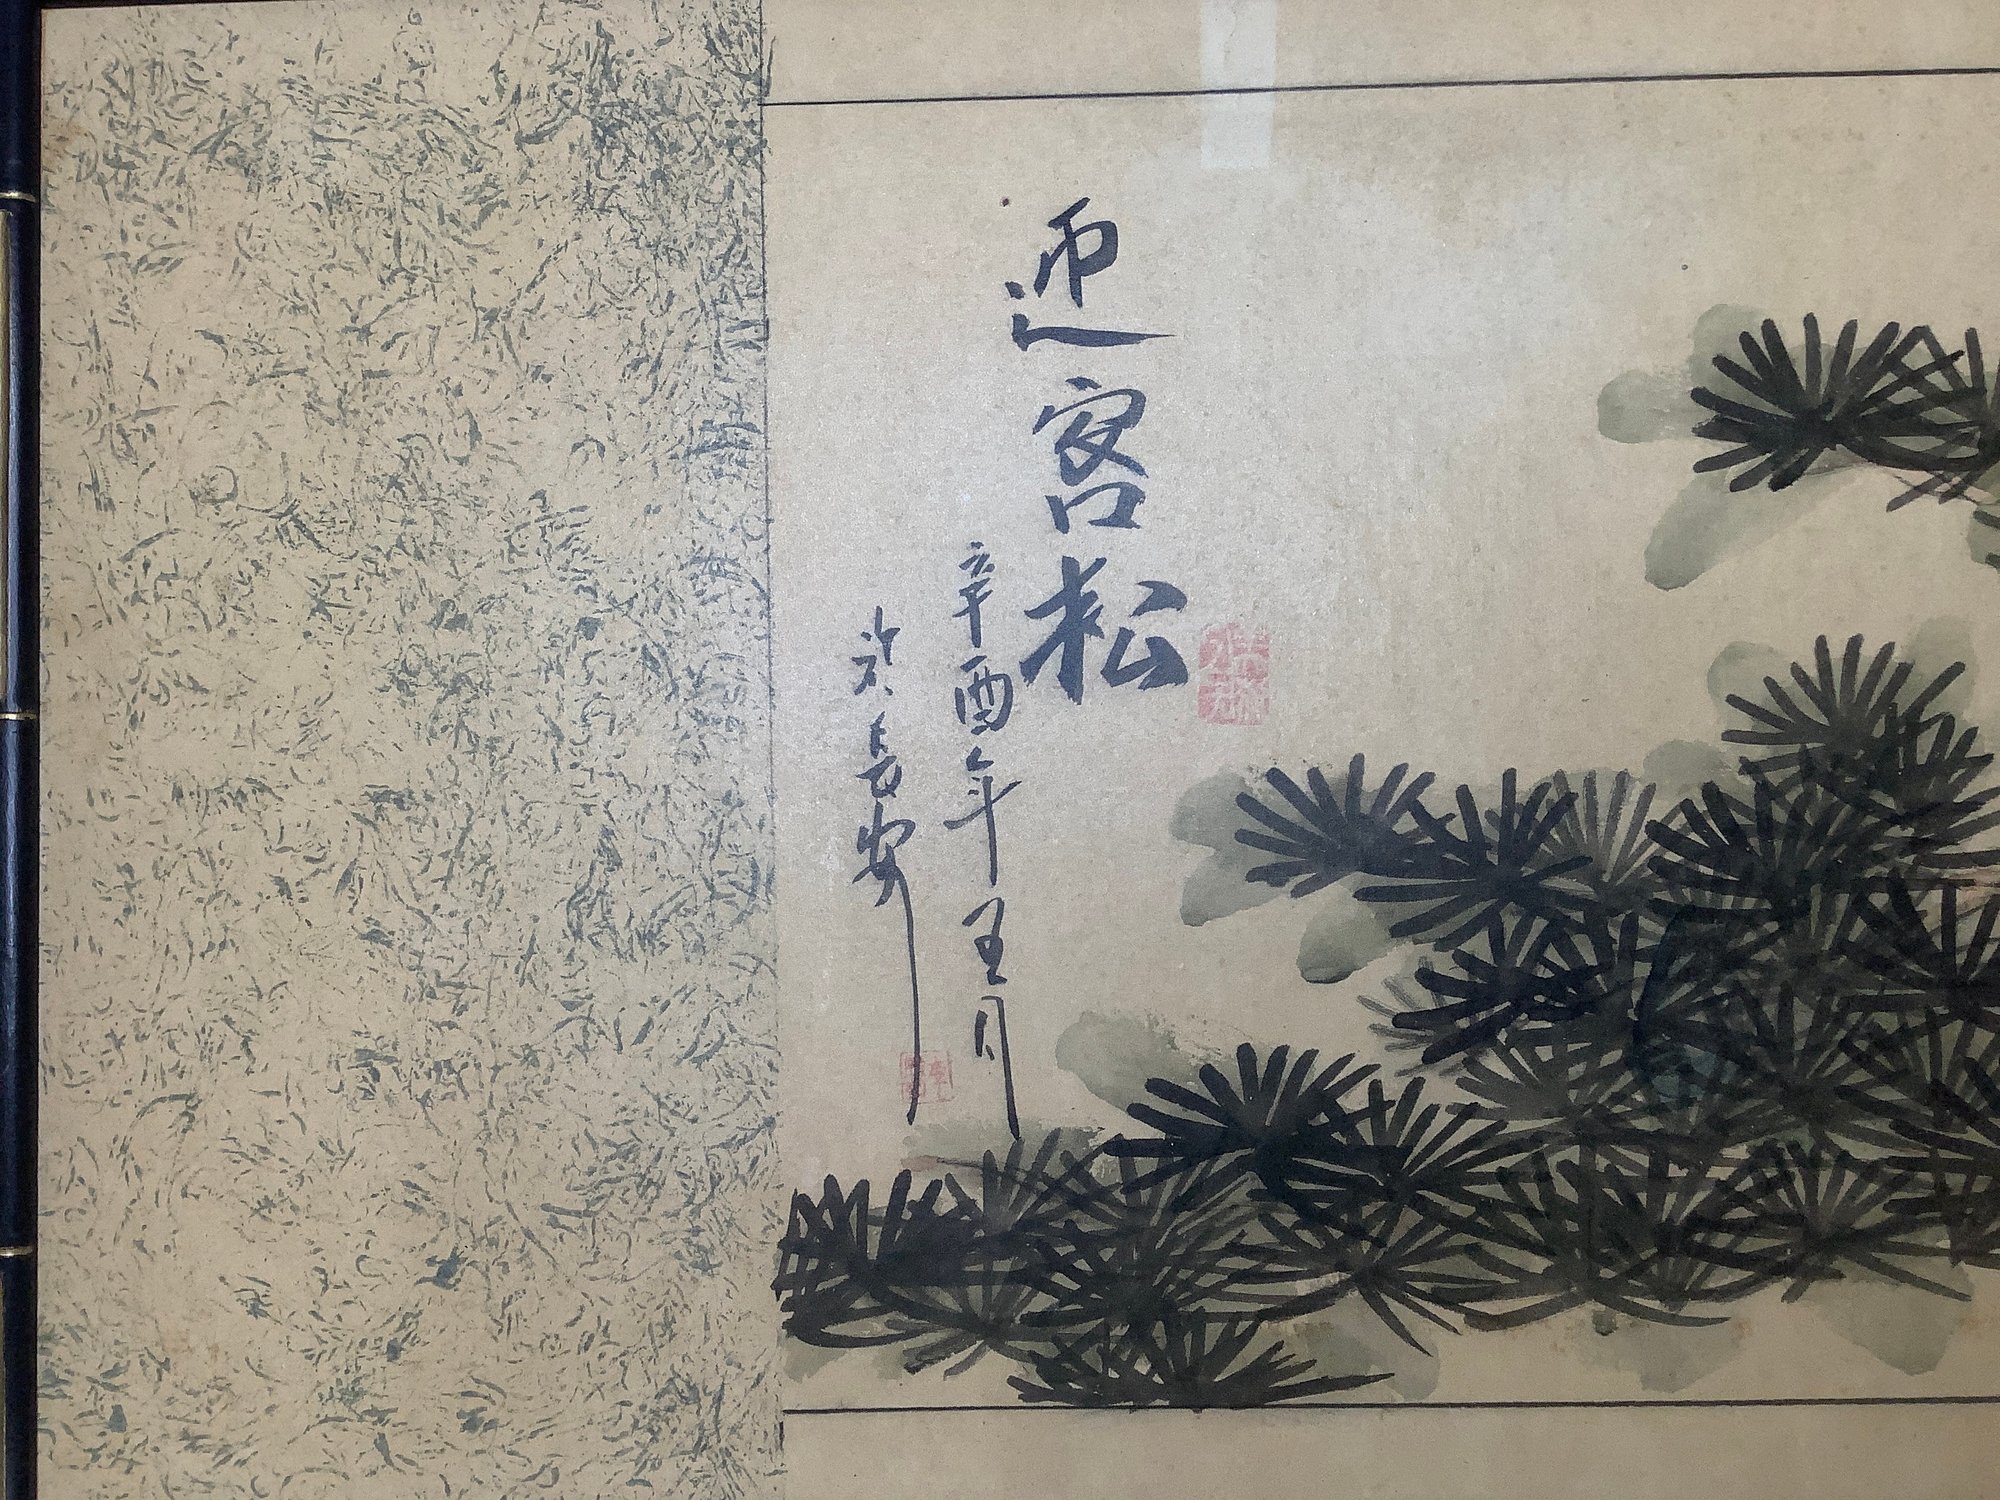 迎客松
辛酉年五月
於長安